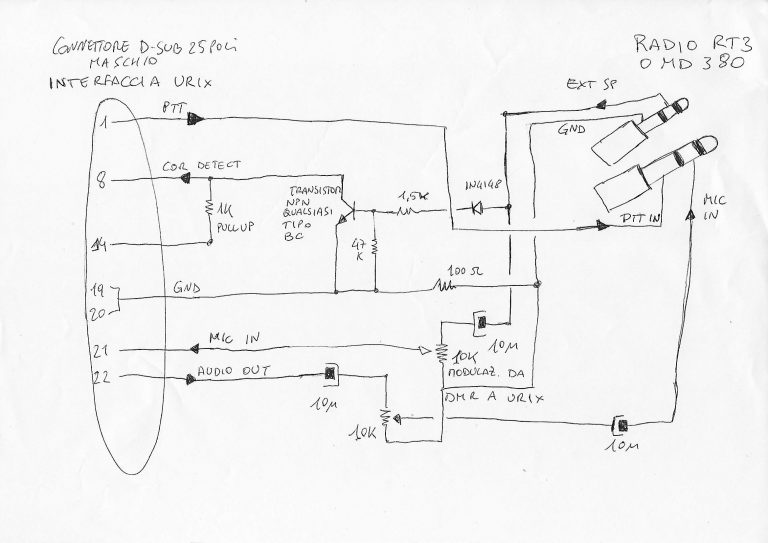 CONNETTORE D-SUB 25 POLI
MASCHIO
INTERFACCIA URIX
RADIO RT3
O MD 380
EXT SP
1
PTT
GND
8
COR DETECT
1K
PULL UP
TRANSISTOR
NPN
QUALSIASI
TIPO
BC
1,5K
1N4148
MIC
IN
PTT IN
14
47
K
19
GND
100 Ω
20
21
MIC IN
10K
10µ
MODULAZ. DA
DMR A URIX
22
AUDIO OUT
10µ
10K
10µ